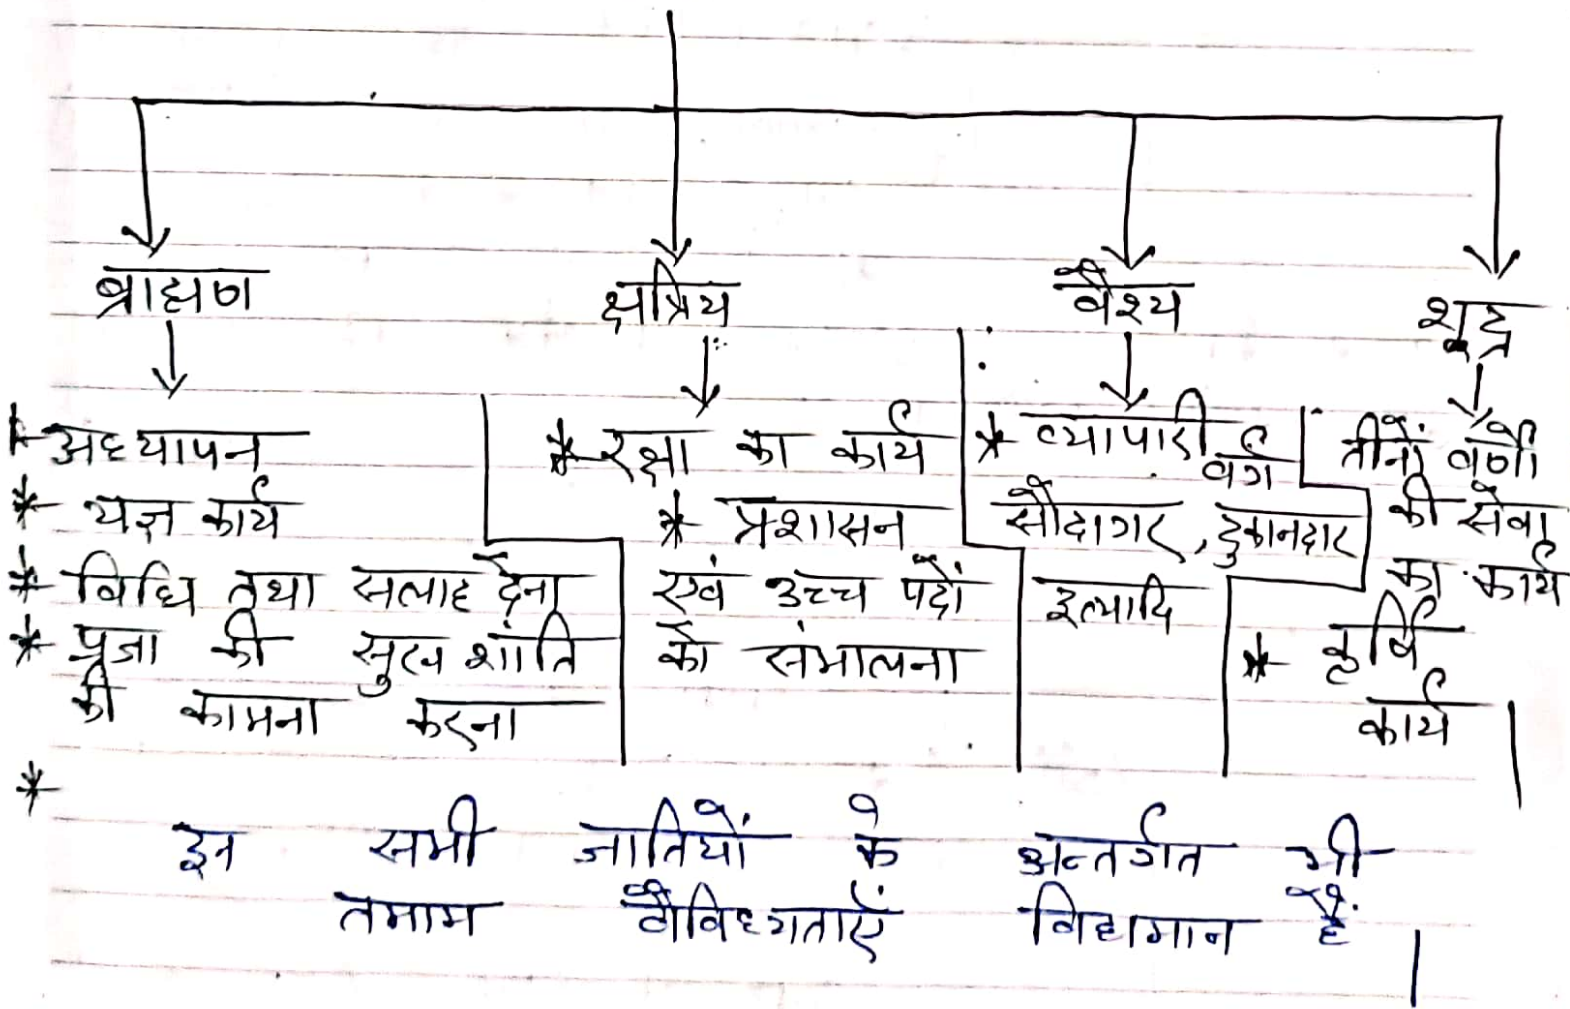 ब्राह्मण
क्षत्रिय
वैश्य
शूद्र
* अध्यापन
* यज्ञ कार्य
* विधि तथा सलाह देना
* प्रजा की सुख शांति
की कामना करना
*
* रक्षा का कार्य
* प्रशासन
एवं उच्च पदों
को संभालना
* व्यापारी वर्ग
सौदागर, दुकानदार
इत्यादि
तीनों वर्णों
की सेवा
का कार्य
* कृषि
कार्य
इन सभी जातियों के अन्तर्गत भी
तमाम वैविध्यताएँ विद्यमान हैं